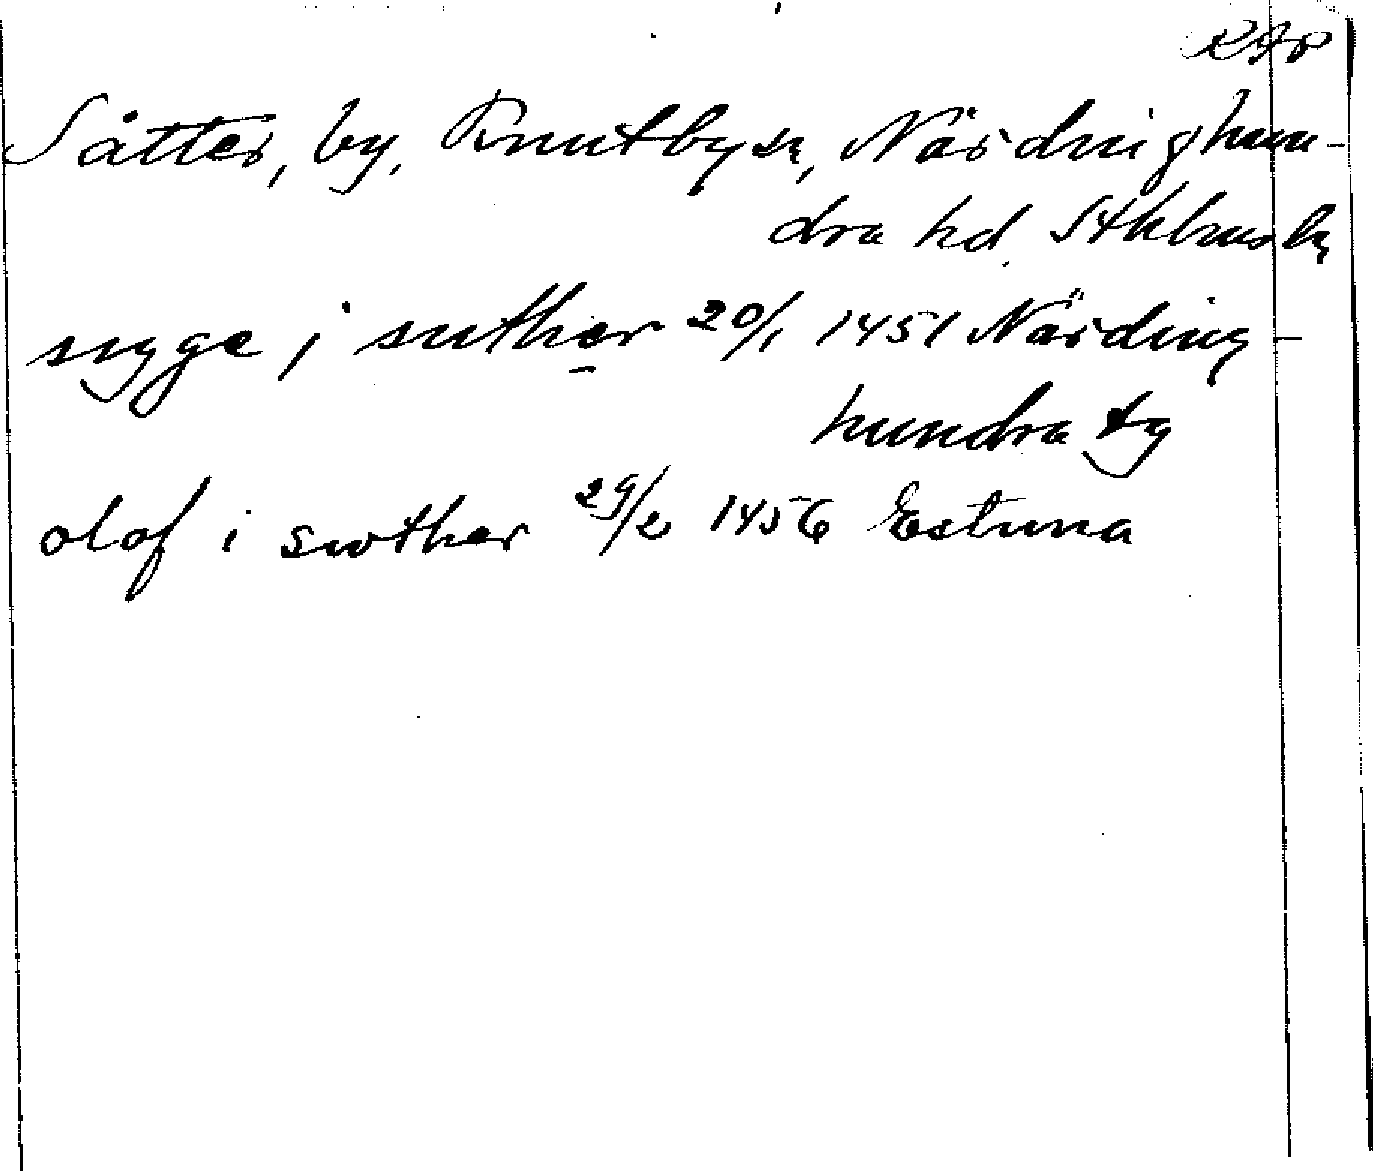 RAp
Såtter, by, Knutby sn, Närdinghun-
dra hd. Sthlms ln
sigge j suther 20/1 1451 Närding-
hundra tg
olof i swther 29/2 1456 Estuna